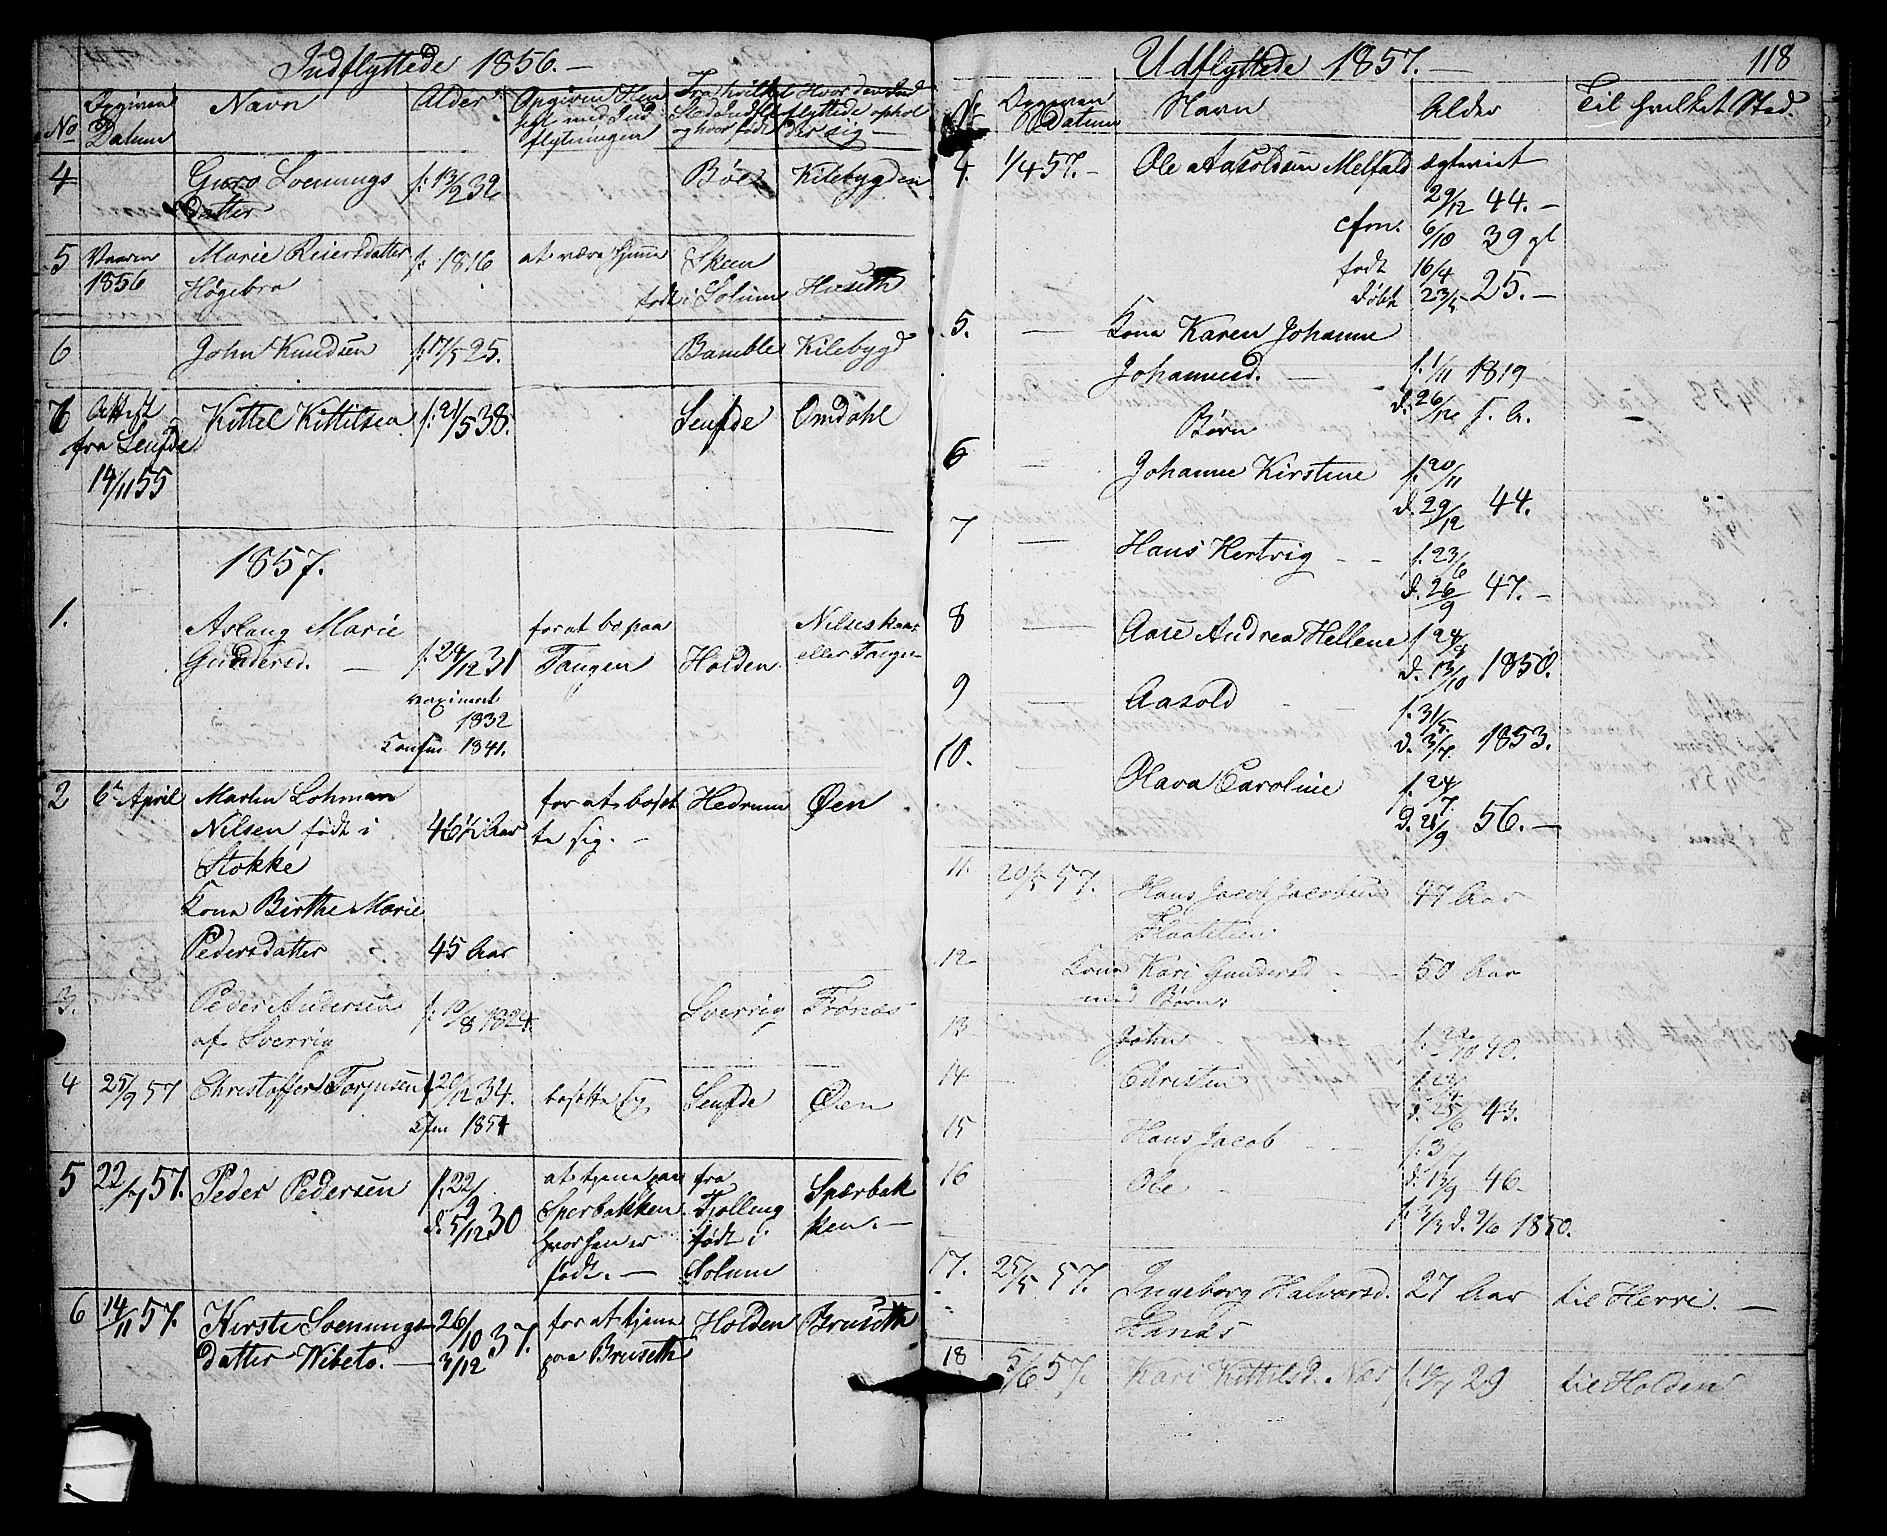 Indflyttede 1856.-
No
Opgiven Datum
Navn
Alder
Opgiven Hensigt med Indflytningen
Fra hvilket Sted Indfl. og hvor født
Hvor den Indflyttede opholder sig
4 Guro Svenungs f. 13/9 32 Bøe Kilebygden
datter
5 Vaaren Marie Reiersdatter f. 1816 at være hjemme Skeen
1856 Høgebra født i Solum Haseth
6 John Knudsen f. 17/5 25. Bamble Kilebygd
7 Attest Kittel Kittilsen f. 21/5 38. Omdahl
fra
14/11 55
1857.
1. Aslaug Marie for at bo paa
Gundersd. - f. 24/12 31 Tangen Holden eller
vaxineret
1832
Konfm 1841.
2 6te April Martin Lohman for at bosæt Hedrum Øen
Nilsen født i 46½ Aar te sig. -
Stokke
Kona Birthe Marie
Pedersdatter 45 Aar
3. Peder Andersen f. 10/8 1824 Sverrig Frønæs
af Sverrig
4 25/9 57 Christoffer Torjusen f. 20/12 34. bosætte sig Øen
Cfm 1851
5 22/7 57. Peder Pedersen f. 22/9 at tjene paa fra Spærbak
d. 5/12 30 Sperbakken Tjølling ken. -
hvor han er født i
født. - Solum
6 14/11 57. Kirsti Svenungs 26/10 37. for at tjene Holden Bruseth
datter Wibeto. - 3/12 paa Bruseth
Udflyttede 1857. -
118
No
Opgiven Datum
Navn
Alder
Til hvilket Sted.
4. 1/4 57. - Ole Aasoldsen Melfald ægteviet
29/12 44. -
cfm. 6/10 39 gl
født 16/4
døbt 23/5 25. -
5. — Kona Karen Johanne
Johannesd. - f. 1/11 1819
d. 26/12 s. A.
Børn
6 — Johanne Kirstine f. 20/11
d. 29/12 44.
7 — Hans Hertvig - - f. 23/6
d. 26/9 47. -
8 — Aase Andrea Hellene f. 24/8
d. 13/10 1850.
9 Aasold - f. 31/5
d. 3/7. 1853.
10. Olava Caroline f. 24/7.
d. 21/9 56. -
11. 20/5 57. Hans Jacob Jacobsen 47 Aar
12 Kona Kari Gundersd - 50 Aar
med Børn:
13 John - f. 22/10 40.
14 Christen
d. 25/6 43.
15 Hans Jacob - - f. 3/7
d. 13/9 46 -
16 Ole -
f. 3/3 d. 9/6 1850.
17. 25/5 57. Ingeborg Halvorsd. 27 Aar til Herre. -
Hanås
18 5/6 57. Kari Kittilsd. Næs 29 til Holden